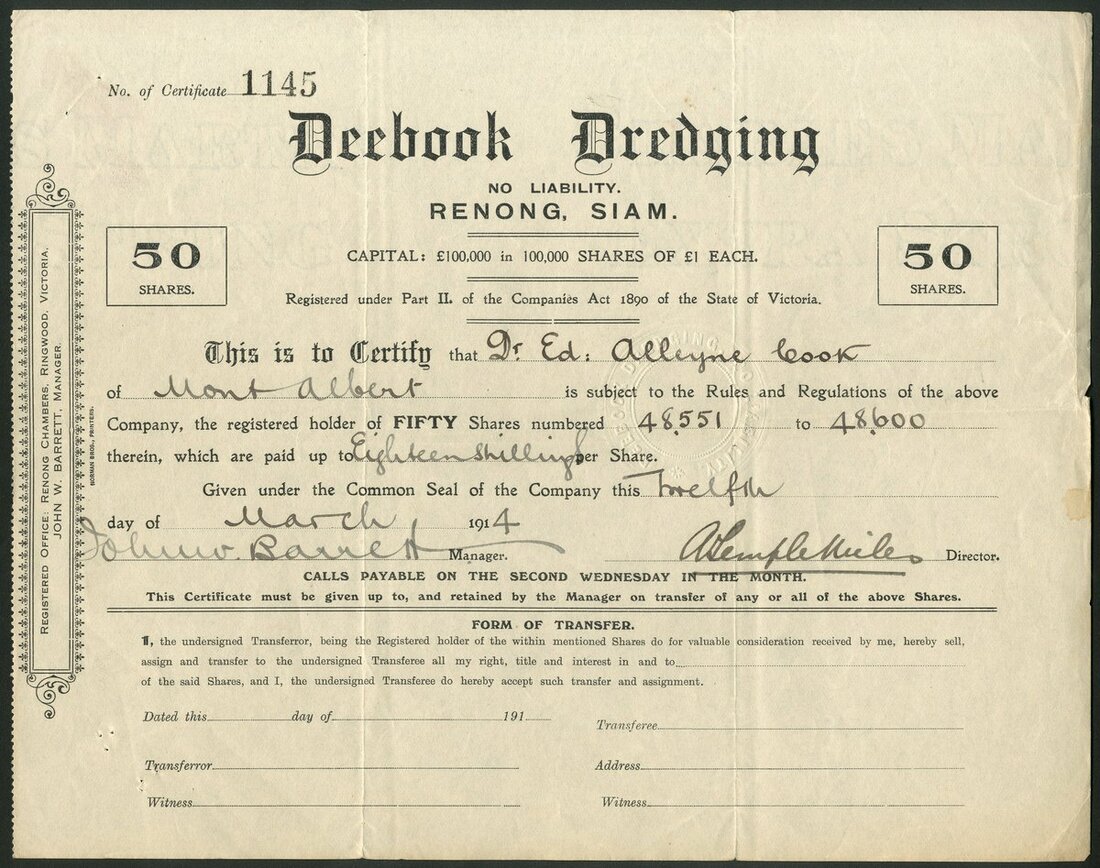 No. of Certificate 1145
Deebook Dredging
NO LIABILITY.
RENONG, SIAM.
50
SHARES.
CAPITAL: £100,000 in 100,000 SHARES OF £1 EACH.
50
SHARES.
Registered under Part II. of the Companies Act 1890 of the State of Victoria.
This is to Certify that Dr Ed: Alleyne Cook
of Mont Albert is subject to the Rules and Regulations of the above
Company, the registered holder of FIFTY Shares numbered 48,551 to 48,600
therein, which are paid up to Eighteen shillings per Share.
Given under the Common Seal of the Company this Twelfth
day of March 1914
John W. Barrett Manager. A Temple Miles Director.
CALLS PAYABLE ON THE SECOND WEDNESDAY IN THE MONTH.
This Certificate must be given up to, and retained by the Manager on transfer of any or all of the above Shares.
FORM OF TRANSFER.
I, the undersigned Transferror, being the Registered holder of the within mentioned Shares do for valuable consideration received by me, hereby sell,
assign and transfer to the undersigned Transferee all my right, title and interest in and to
of the said Shares, and I, the undersigned Transferee do hereby accept such transfer and assignment.
Dated this day of 191
Transferee
Transferror
Address
Witness
Witness
REGISTERED OFFICE: RENONG CHAMBERS, RINGWOOD, VICTORIA.
JOHN W. BARRETT, MANAGER.
NORMAN BROS., PRINTERS.